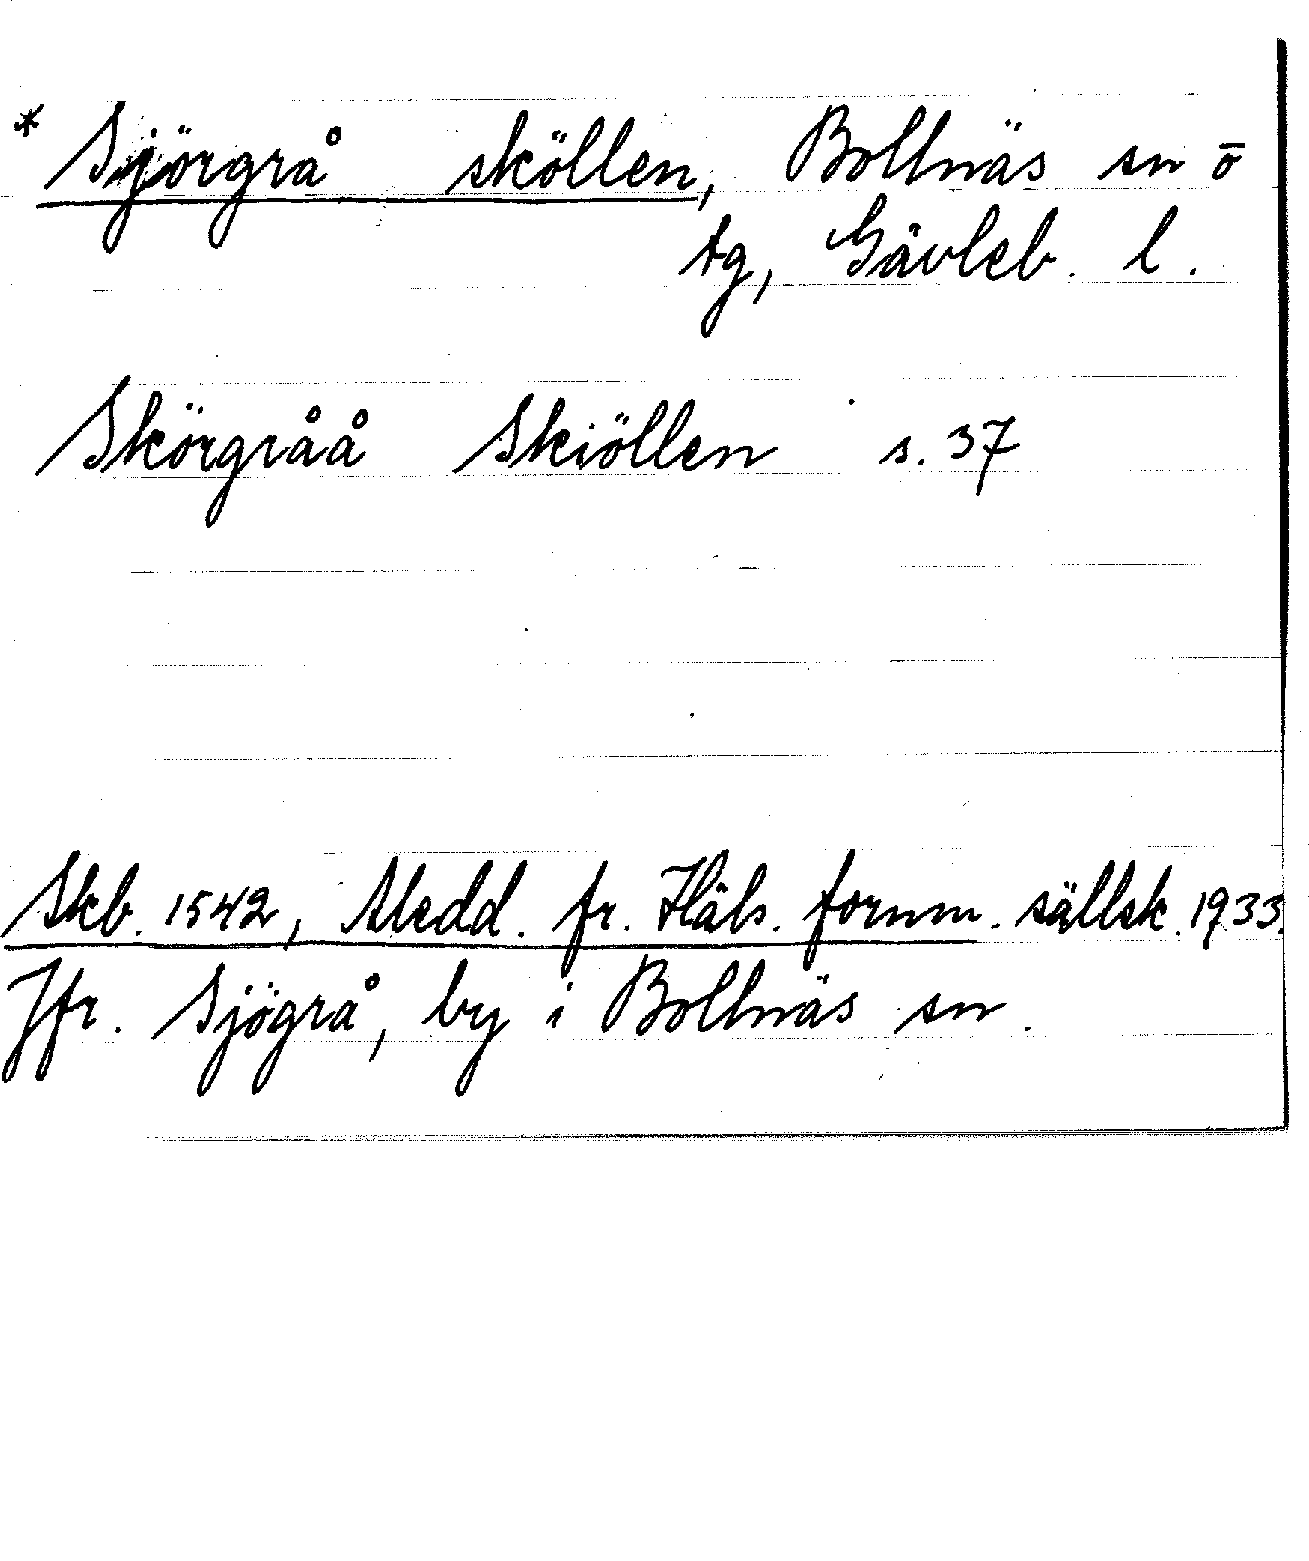 * Sjörgrå sköllen, Bollnäs sn ö
tg, Gävleb. l.
Skörgråå Skiöllen s. 37
Skb. 1542, Medd. fr. Häls. fornm. sällsk. 1933.
Jfr. Sjögrå, by i Bollnäs sn.